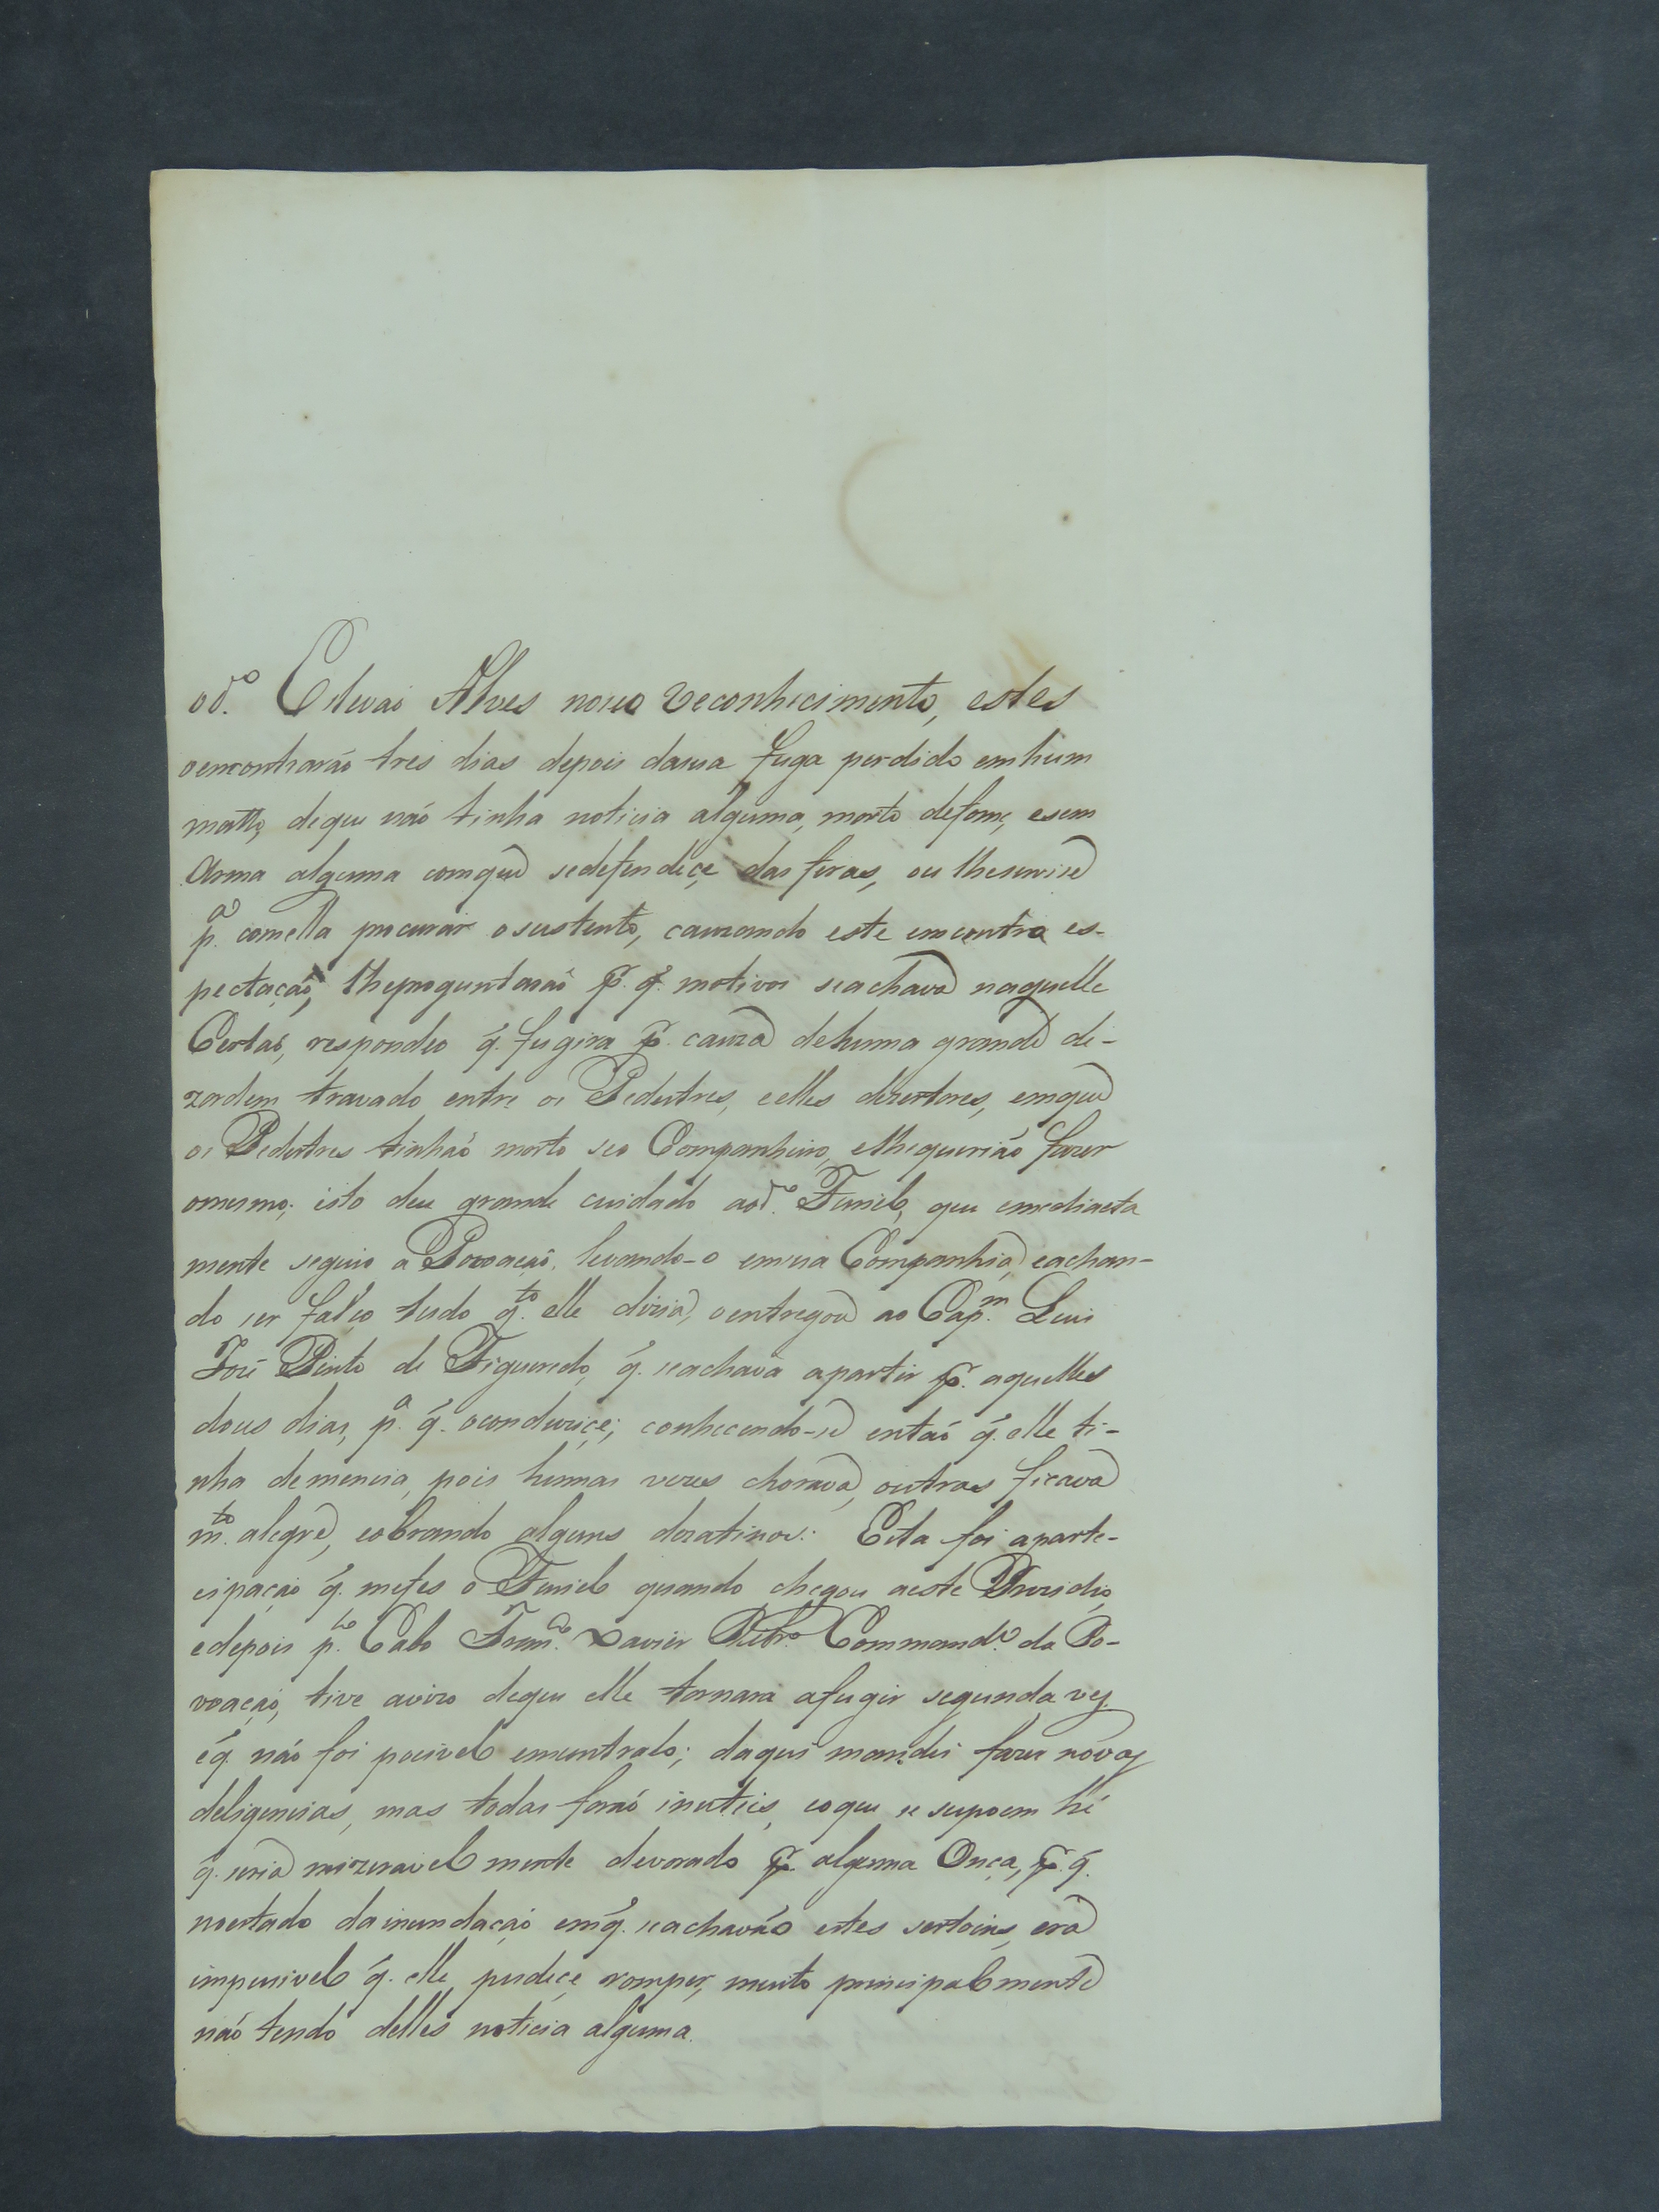 od.º Estevaõ Alves no seo reconhecimento, estes
oencontharaõ tres dias depois dasua fuga perdido emhum
matto, deque naõ tinha noticia alguma, morto defome, esem
Arma alguma comque sedefendeçe das feras, ou lheservise
p.ª comella procurar osustento, cauzando este encontro es-
pectaçaõ, lheproguntaraõ p. q̃. motivos seachava naquelle
Certaõ, respondeo q̃. fugira p. cauza dehuma grande de-
zordem travado entre os Pedestres, eelles dezertores, emque
os Pedestres tinhaõ morto seo Companheiro, elhequeriaõ fazer
omesmo; isto deu grande cuidado aod.º Furiel, que emediacta
mente seguio a Povoaçaõ, levando-o emsua Companhia, eachan-
do ser falço tudo q.to elle dizia, oentregou ao Cap.m Luis
José Pinto de Figueredo, q̃. seachava apartir p. aquelles
dous dias, p.ª q̃. oconduziçe; conhecendo-se entaõ q̃. elle ti-
nha demencia, pois humas vezes chorava, outras ficava
m.to alegre, eobrando alguns dezatinos: Esta foi aparte-
cipaçaõ q̃. mefes o Furiel quando chegou aeste Prezidio,
edepois p.lo Cabo Fran.co Xavier Ribr.º Command.e da Po-
voaçaõ, tive avizo deque elle tornara afugir segunda vez
éq̃. naõ foi pocivel encontralo; daqui mandei fazer novas
deligencias, mas todas foraõ inuteis, eoque se supoem hé
q̃. seria mizeravelmente devorado p. alguma Onça, p. q̃.
noestado dainundaçaõ emq̃. seachavaõ estes sertoins, era
impucivel q̃. elle pudeçe romper, muito principalmente
naõ tendo delles noticia alguma.